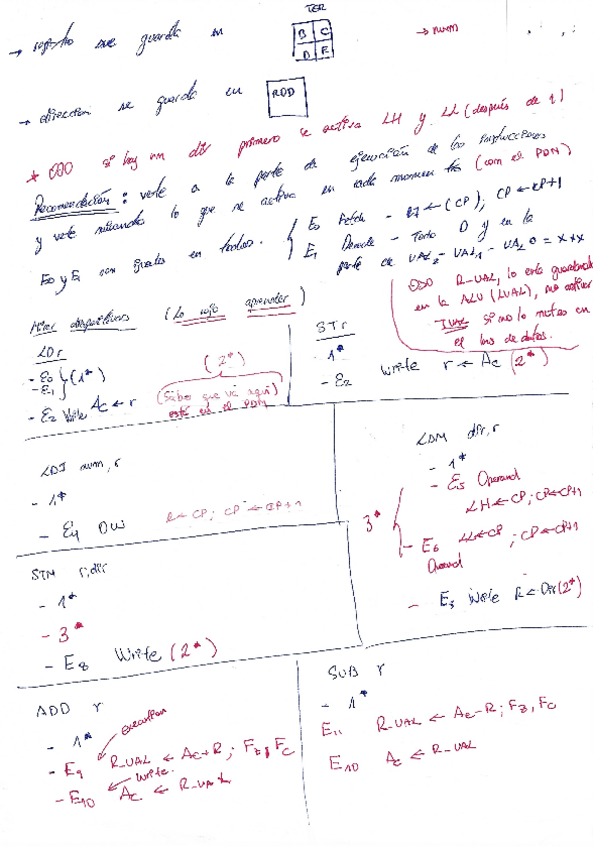 TER
→ registro que guarda en
B C
D E
→ num
→ direccion se guarda en RDD
* OJO si hay un dir primero se activa LH y LL (después de 1)
Recomendación: vete a la parte de ejecución de las instrucciones
y vete mirando lo que se activa en cada momento (con el PDN)
E0 y E1 son iguales en todos.
E0 Fetch - ← (CP); CP ← CP+1
E1 Decode - Todo 0 y en la
parte de UAL2 - UAL1 - UAL0 = XXX
OJO R-UAL, lo está guardando
en la ALU (LUAL), no activar
IUAL si no lo metas en
el bus de datos.
Hacer diapositivas (Lo rojo aprender)
LDr
- E0
- E1 } (1*)
- E2 Write Ac ← r
(2*)
(Saber que va aquí)
está en el PDN
STr
- 1*
- E2 Write r ← Ac (2*)
LDI num, r
- 1*
- E4 OW R ← CP; CP ← CP+1
LDM dir, r
- 1*
- E5 Operand
LH ← CP; CP ← CP+1
3*
- E6 LL ← CP; CP ← CP+1
Operand
- E3 Write R ← Dir (2*)
STM r, dir
- 1*
- 3*
- E8 Write (2*)
ADD r
- 1*
execution
- E9 R_UAL ← Ac+R; Fz, Fc
write
- E10 Ac ← R_UAL
SUB r
- 1*
E11 R_UAL ← Ac-R; Fz, Fc
E10 Ac ← R_UAL